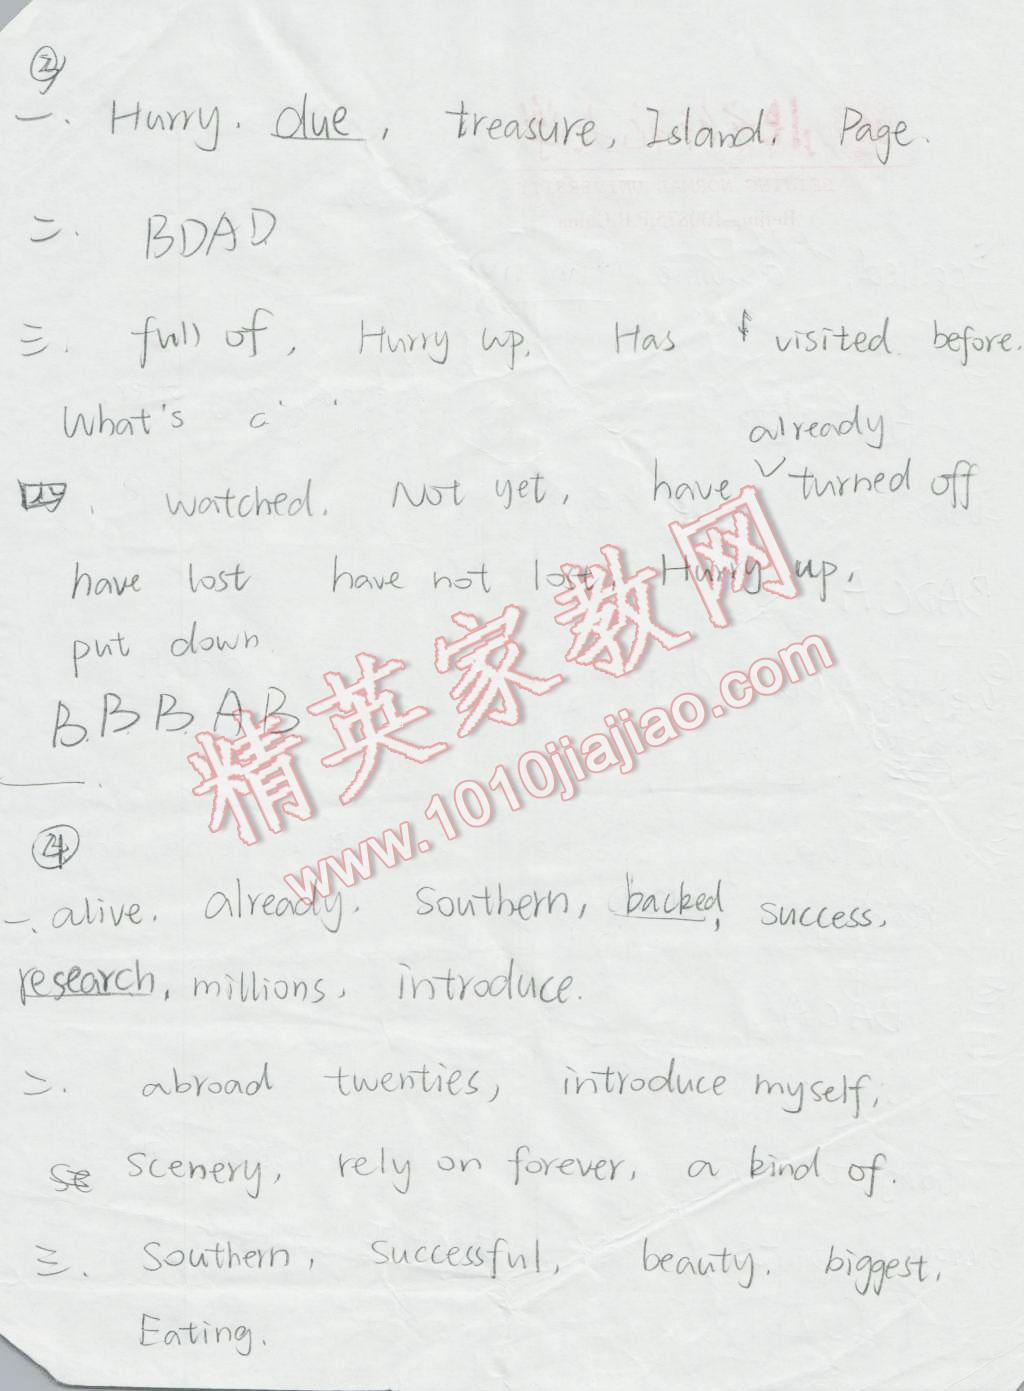 ③
一. Hurry. due, treasure, Island. Page.
二. BDAD
三. full of, Hurry up. Has visited before.
What's
already
四. watched. Not yet, have ∨ turned off
have lost have not lost, Hurry up,
put down
B. B B. A B
精英家教网
www.1010jiajiao.com
④
一. alive. already. Southern, backed, success.
research, millions, introduce.
二. abroad twenties, introduce myself,
scenery, rely on forever, a kind of.
三. Southern, successful, beauty. biggest,
Eating.